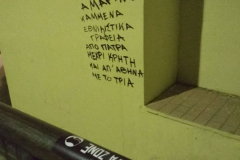 ΚΑΜΜΕΝΑ
ΕΘΝΙΚΙΣΤΙΚΑ
ΓΡΑΦΕΙΑ
ΑΠΟ ΠΑΤΡΑ
ΜΕΧΡΙ ΚΡΗΤΗ
ΚΑΙ ΑΠ' ΑΘΗΝΑ
ΜΕ ΤΟ ΤΡΙΑ